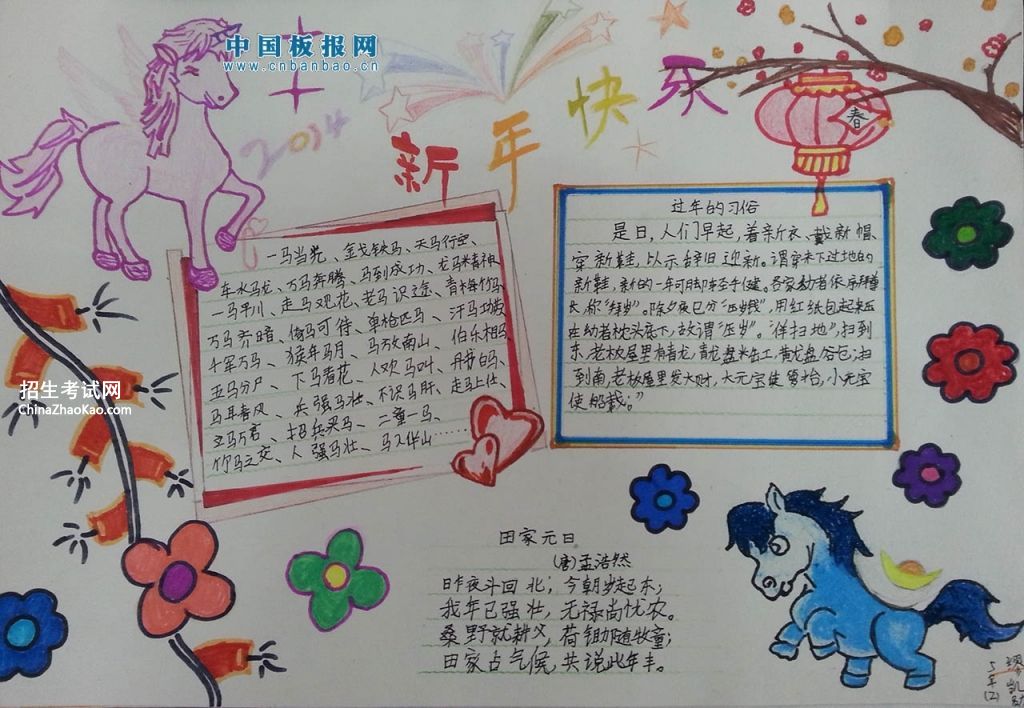 中国板报网
www.cnbanbao.cn
2014
新年快乐
春
一马当先、金戈铁马、天马行空、
车水马龙、万马奔腾、马到成功、龙马精神、
一马平川、走马观花、老马识途、青梅竹马、
万马齐喑、倚马可待、单枪匹马、汗马功劳、
千军万马、猴年马月、马放南山、伯乐相马、
五马分尸、下马看花、人欢马叫、
马耳春风、兵强马壮、不识马肝、走马上任、
立马万言、招兵买马、二童一马、
竹马之交、人强马壮、马入华山……
过年的习俗
是日，人们早起，着新衣、戴新帽、
穿新鞋，以示辞旧迎新。谓穿未下过地的
新鞋，新的一年可脚轻手健。各家幼者依序拜尊
长，称“拜岁”。除夕夜已分“压岁钱”，用红纸包起来压
在幼者枕头底下，故谓“压岁”。“伴扫地”，扫到
东，老板屋里有青龙，青龙盘米缸，黄龙盘谷仓；扫
到南，老板屋里发大财，大元宝使箩抬，小元宝
使船载。”
田家元日
(唐)孟浩然
昨夜斗回北；今朝岁起东；
我年已强壮，无禄尚忧农。
桑野就耕父，荷锄随牧童；
田家占气候，共说此年丰。
招生考试网
ChinaZhaoKao.com
五年(2)